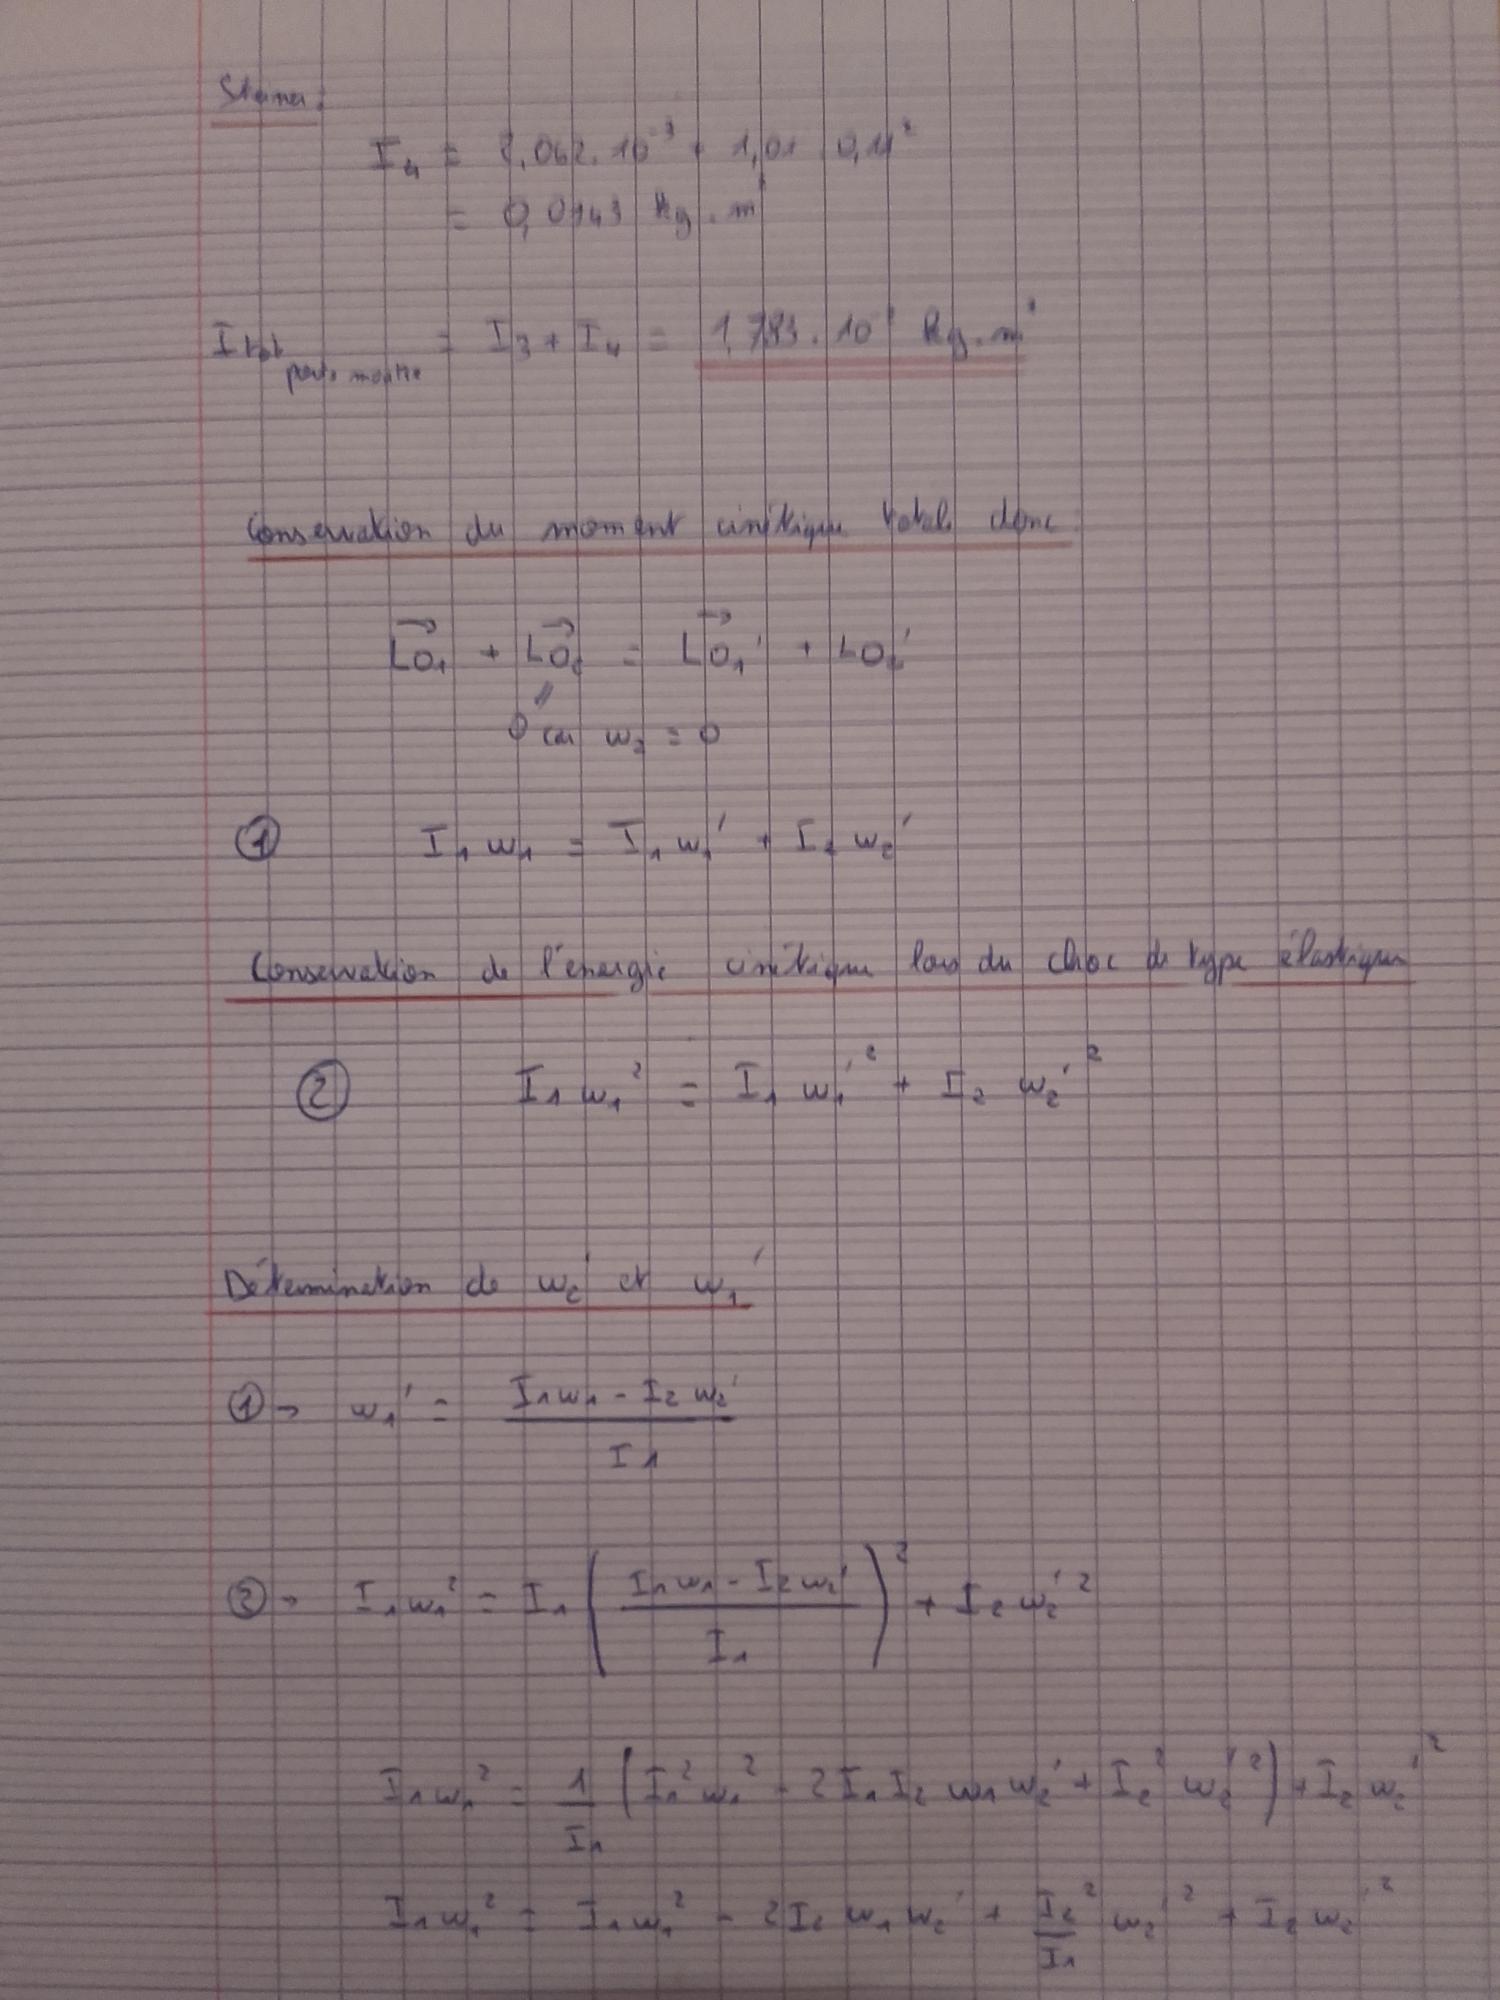 I₄ = 2,062.10⁻³ + 1,01 0,11²
= 0,0143 Kg.m
I tot porte montre = I₃ + I₄ = 1,783.10 Kg.m²
Conservation du moment cinétique total donc
LO₁ + LO₂ = LO₁' + LO₂'
0 car w₂ = 0
① I₁ w₁ = I₁ w₁' + I₂ w₂'
Conservation de l'énergie cinétique lors du choc de type élastique
② I₁ w₁² = I₁ w₁'² + I₂ w₂'²
Détermination de w₂' et w₁'
① → w₁' = (I₁w₁ - I₂w₂') / I₁
② → I₁w₁² = I₁ ((I₁w₁ - I₂w₂') / I₁)² + I₂w₂'²
I₁w₁² = 1/I₁ (I₁²w₁² - 2I₁I₂ w₁w₂' + I₂² w₂'²) + I₂ w₂'²
I₁w₁² = I₁w₁² - 2I₂ w₁w₂' + I₂²/I₁ w₂'² + I₂ w₂'²